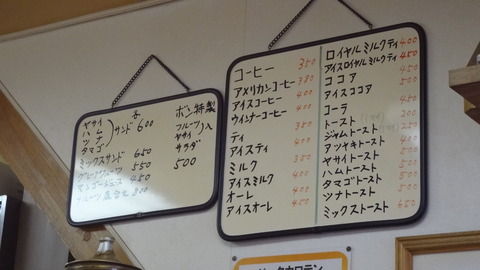 各
ヤサイ
ハム
ツナ
タマゴ
サンド 600
ミックスサンド 650
グレープジュース 550
マンゴージュース 450
フルーツ盛合せ 800
ボン特製
フルーツ
ヤサイ 入
サラダ
500
コーヒー 350
アメリカンコーヒー 380
アイスコーヒー 400
ウインナーコーヒー 400
ティ 350
アイスティ 400
ミルク 350
アイスミルク 400
オーレ 400
アイスオーレ 450
ロイヤルミルクティ 400
アイスロイヤルミルクティ 450
ココア 400
アイスココア 450
コーラ 400
トースト 200
ジャムトースト
アツヤキトースト 400
ヤサイトースト 500
ハムトースト 500
タマゴトースト 500
ツナトースト 500
ミックストースト 550